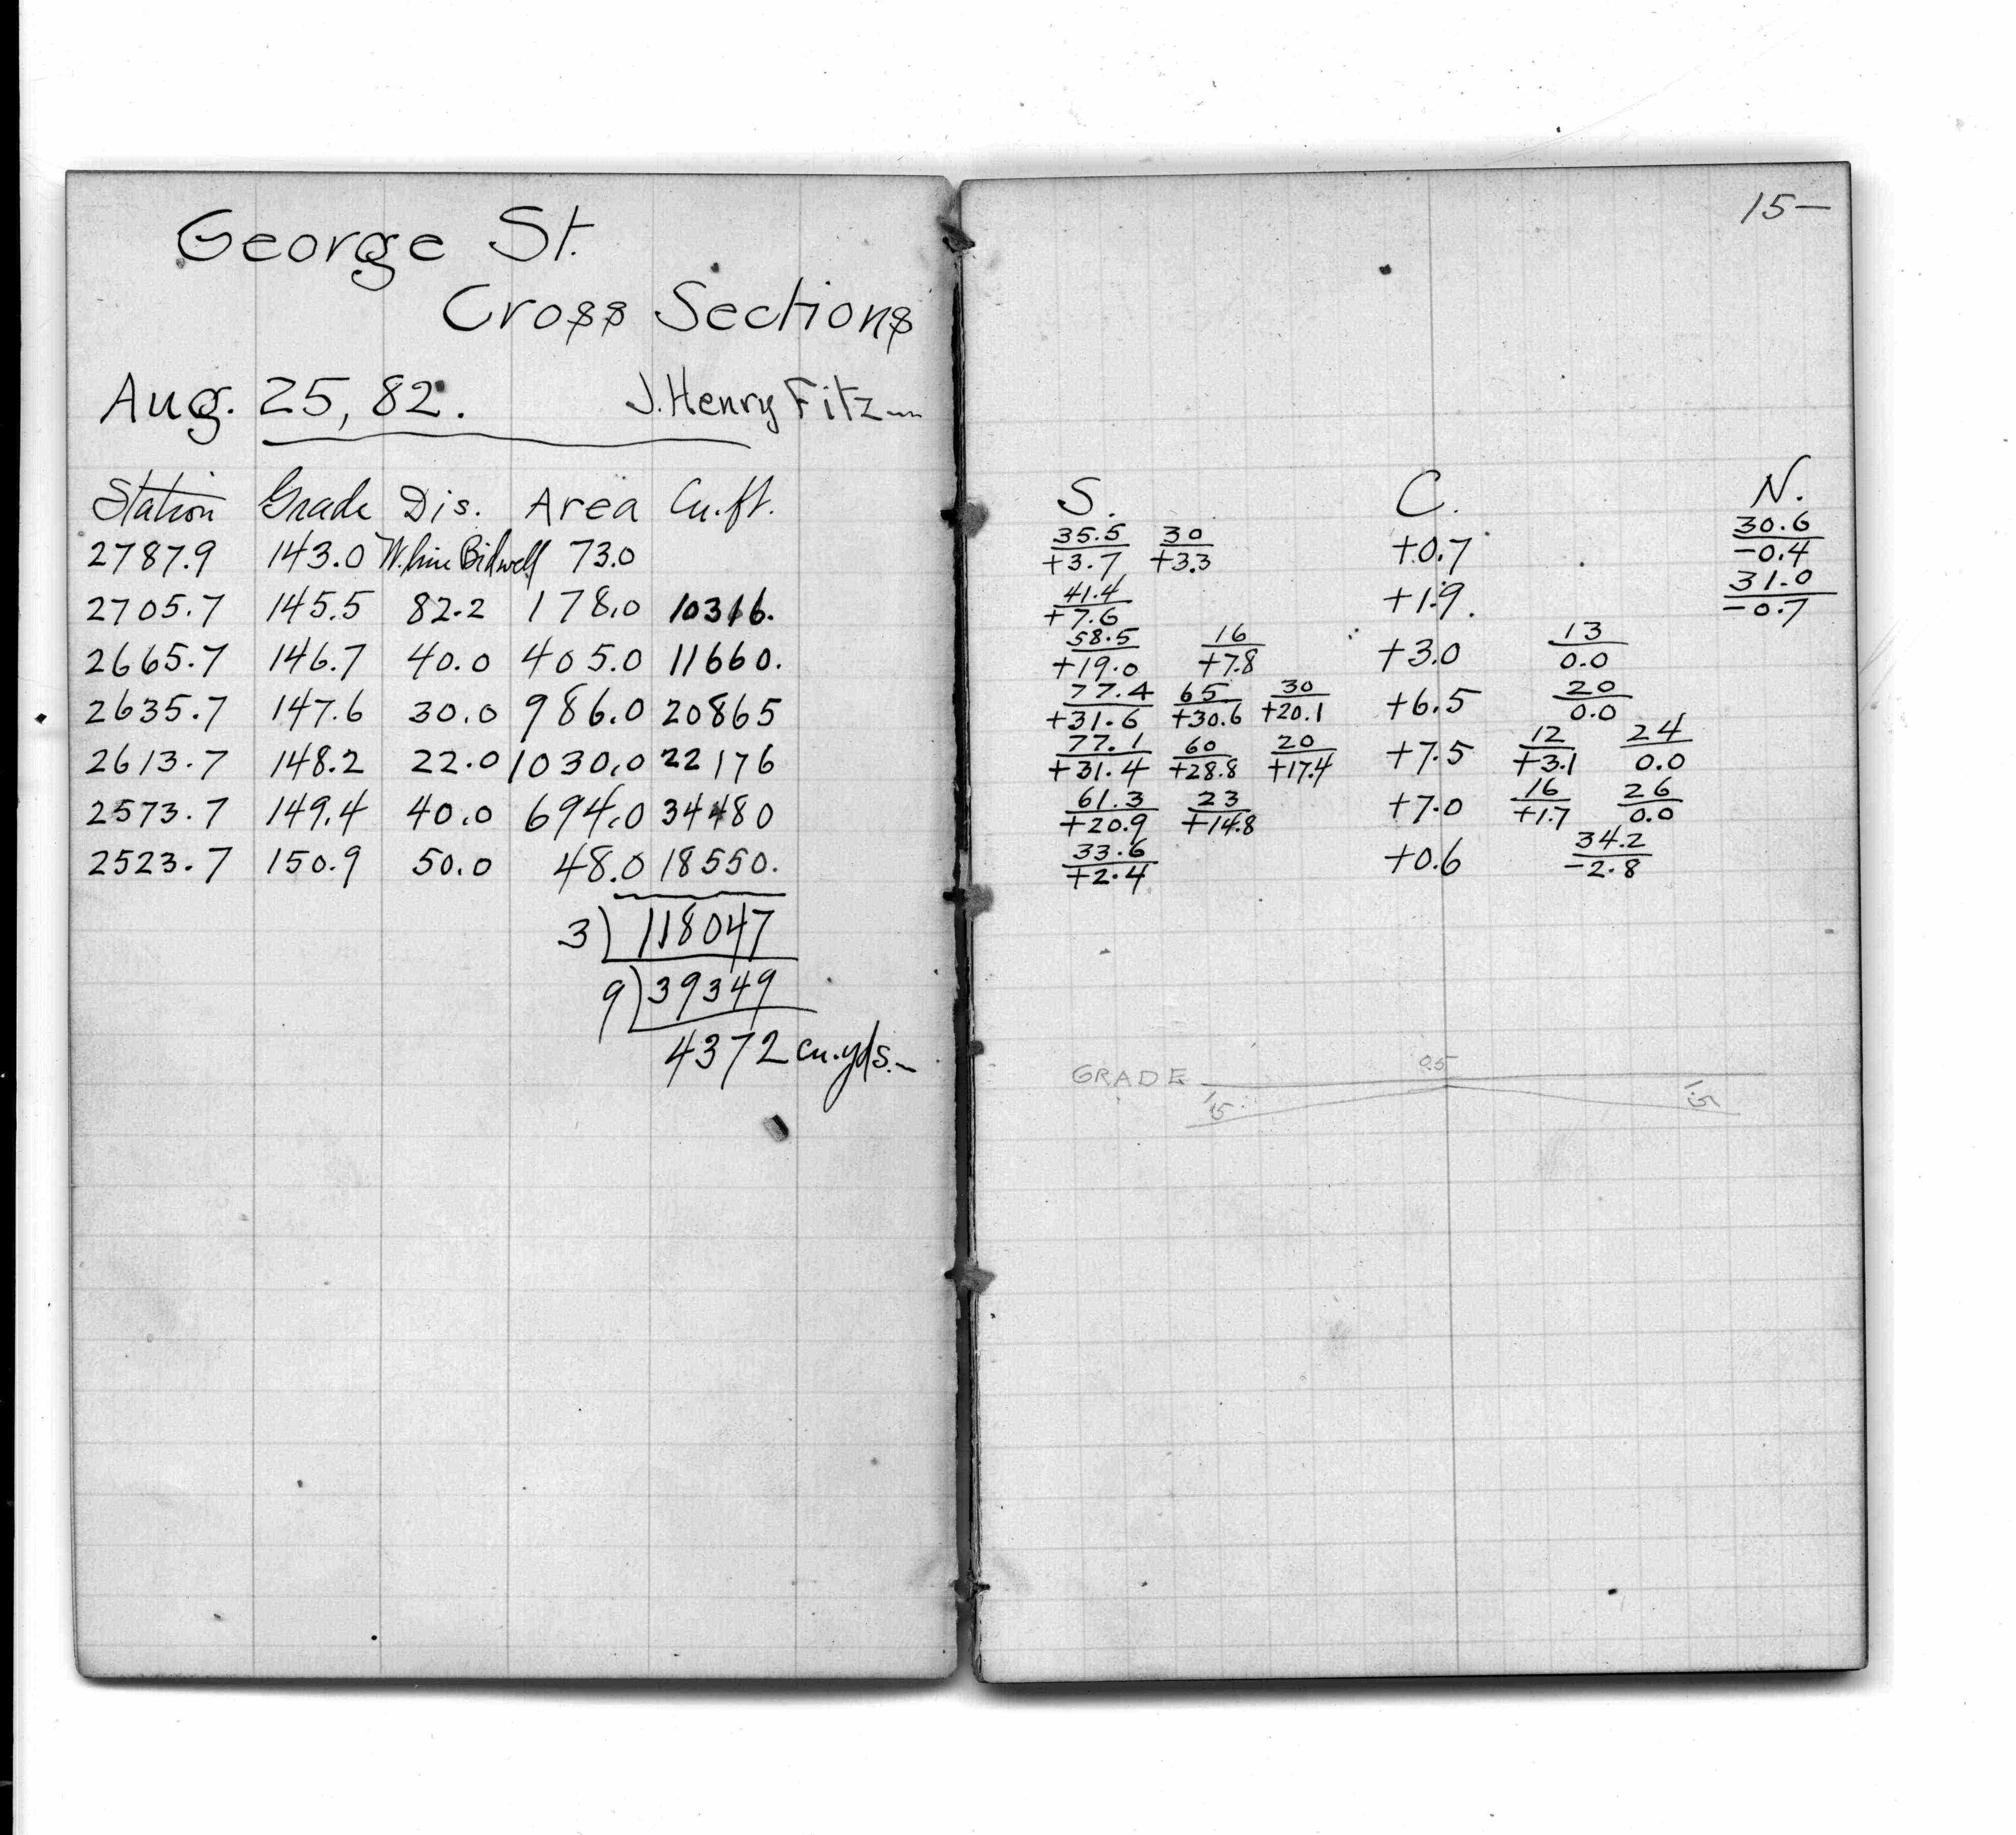 George St.
Cross Sections
Aug. 25, 82. J. Henry Fitz
Station Grade Dis. Area Cu. ft.
2787.9 143.0 W. line Bidwell 73.0
2705.7 145.5 82.2 178.0 10316.
2665.7 146.7 40.0 405.0 11660.
2635.7 147.6 30.0 986.0 20865
2613.7 148.2 22.0 1030.0 22176
2573.7 149.4 40.0 694.0 34480
2523.7 150.9 50.0 48.0 18550.
3) 118047
9) 39349
4372 cu. yds.
15—
S. C. N.
35.5 30 30.6
+3.7 +3.3 +0.7 -0.4
41.4 31.0
+7.6 +1.9. -0.7
58.5 16 13
+19.0 +7.8 +3.0 0.0
77.4 65 30 20
+31.6 +30.6 +20.1 +6.5 0.0
77.1 60 20 12 24
+31.4 +28.8 +17.4 +7.5 +3.1 0.0
61.3 23 16 26
+20.9 +14.8 +7.0 +1.7 0.0
33.6 34.2
+2.4 +0.6 -2.8
GRADE 0.5
1.5 1.5